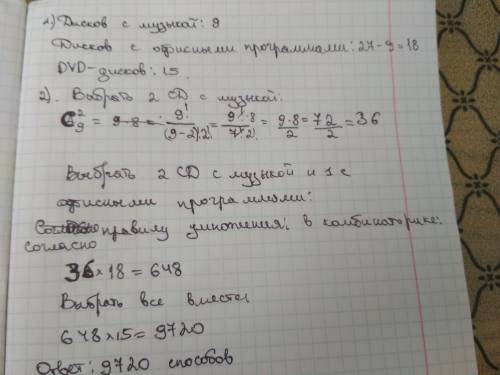 1) Дисков с музыкой: 9
Дисков с офисными программами: 27-9=18
DVD-дисков: 15.
2). Выбрать 2 CD с музыкой:
C₉² = 9·8 = 9!/(9-2)!2! = 9!·8/7!·2! = 9·8/2 = 72/2 = 36
Выбрать 2 CD с музыкой и 1 с
офисными программами:
правилу умножения; в комбинаторике:
согласно
36×18=648
Выбрать все вместе:
648×15=9720
Ответ: 9720 способов